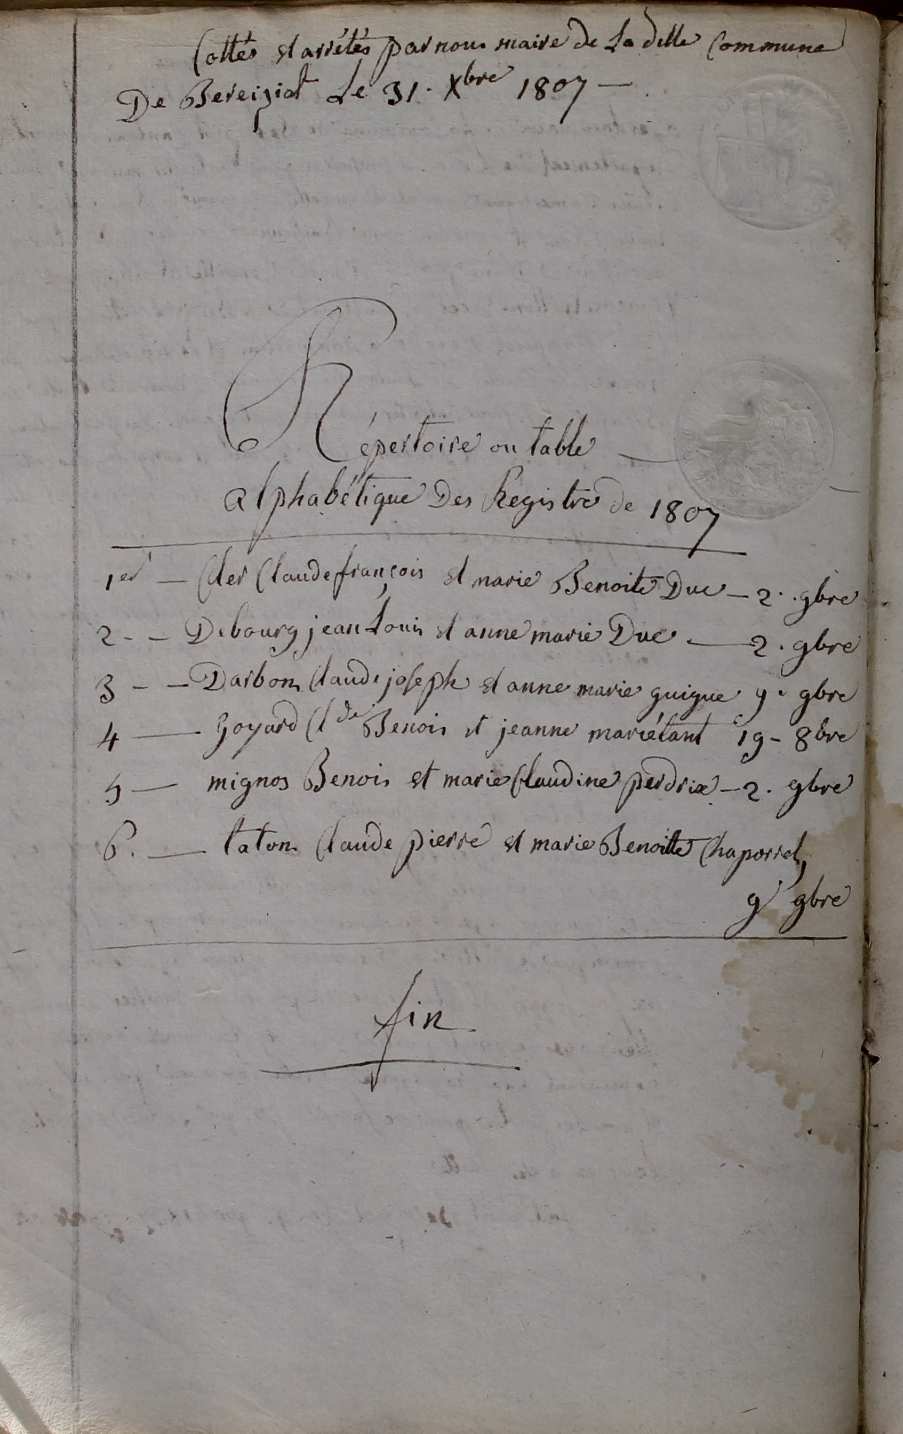 Cottés et arrétés par nous maire de La ditte Commune
De Bereiziat Le 31. Xbre 1807 —
Répertoire ou table —
alphabétique Des Registre de 1807
1er — Cler Claude françois et marie Benoite Duc — 2. 9bre
2 - — Debourg jean Louis et anne marie Duc — 2. 9bre
3 - — Darbon Claude joseph et anne marie guigue 9. 9bre
4 — Goyard Cl de Benois et jeanne mariétant 19 - 8bre
5 — mignos Benois et marie Claudine perdrix — 2. 9bre
6. — taton Claude pierre et marie Benoitte Chaporrel,
9 9bre
fin